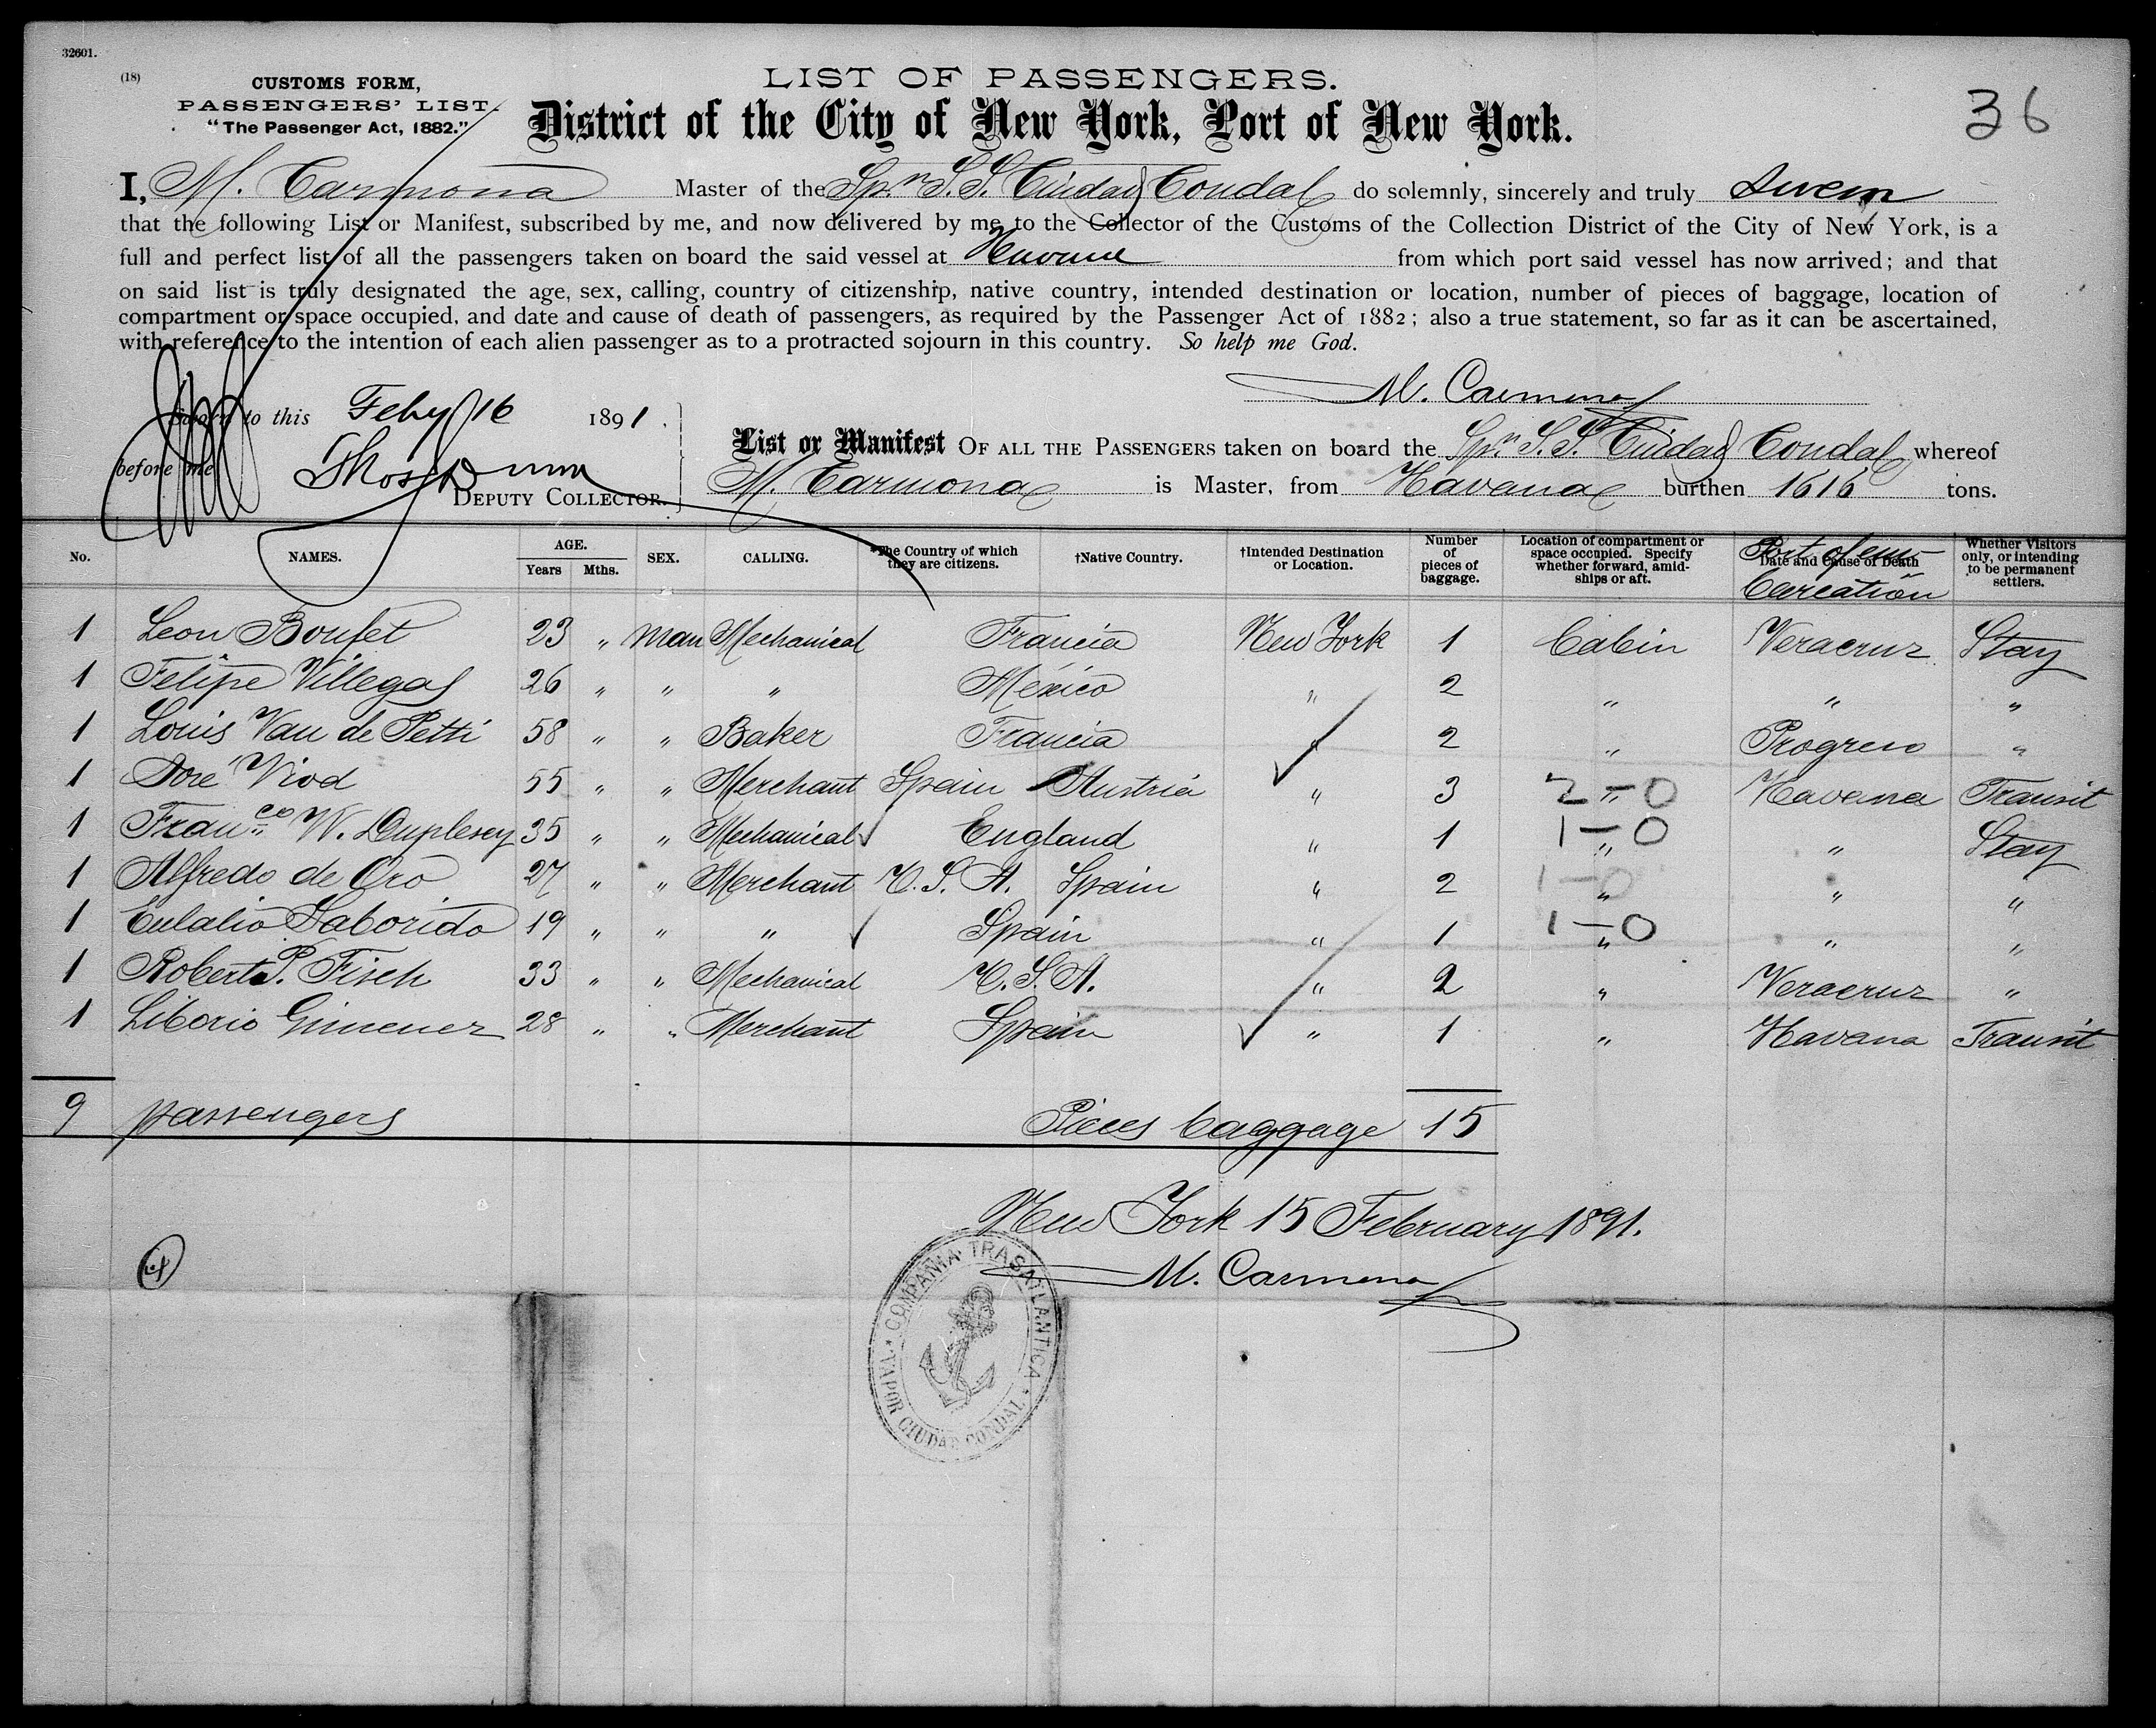 32601.
(18)
CUSTOMS FORM,
PASSENGERS' LIST.
"The Passenger Act, 1882."
LIST OF PASSENGERS.
District of the City of New York, Port of New York.
36
I, M. Carmona Master of the Spn. S.S. Ciudad Condal do solemnly, sincerely and truly Swear
that the following List or Manifest, subscribed by me, and now delivered by me to the Collector of the Customs of the Collection District of the City of New York, is a
full and perfect list of all the passengers taken on board the said vessel at Havana from which port said vessel has now arrived; and that
on said list is truly designated the age, sex, calling, country of citizenship, native country, intended destination or location, number of pieces of baggage, location of
compartment or space occupied, and date and cause of death of passengers, as required by the Passenger Act of 1882; also a true statement, so far as it can be ascertained,
with reference to the intention of each alien passenger as to a protracted sojourn in this country. So help me God.
M. Carmona
Sworn to this Feby 16 1891.
before me Thos Dunn
DEPUTY COLLECTOR.
List or Manifest OF ALL THE PASSENGERS taken on board the Spn. S.S. Ciudad Condal whereof
M. Carmona is Master, from Havana burthen 1616 tons.
No. NAMES. AGE. Years Mths. SEX. CALLING. *The Country of which they are citizens. †Native Country. †Intended Destination or Location. Number of pieces of baggage. Location of compartment or space occupied. Specify whether forward, amidships or aft. Date and Cause of Death Port of embarcation Whether Visitors only, or intending to be permanent settlers.
1 Leon Boufet 23 " Man Mechanical Francia New York 1 Cabin Veracruz Stay
1 Felipe Villegas 26 " " " México " 2 " " "
1 Louis Van de Petti 58 " " Baker Francia " 2 " Progreso "
1 José Viod 55 " " Merchant Spain Austria " 3 " 2-0 Havana Transit
1 Franco W. Duplesey 35 " " Mechanical England " 1 " 1-0 " Stay
1 Alfredo de Oro 27 " " Merchant U.S.A. Spain " 2 " 1-0 " "
1 Eulalio Saborido 19 " " " Spain " 1 " 1-0 " "
1 Robert P. Fisch 33 " " Mechanical U.S.A. " 2 " Veracruz "
1 Liborio Gimenez 28 " " Merchant Spain " 1 " Havana Transit
9 passengers Pieces baggage 15
New York 15 February 1891.
M. Carmona
COMPAÑIA TRASATLANTICA
VAPOR CIUDAD CONDAL